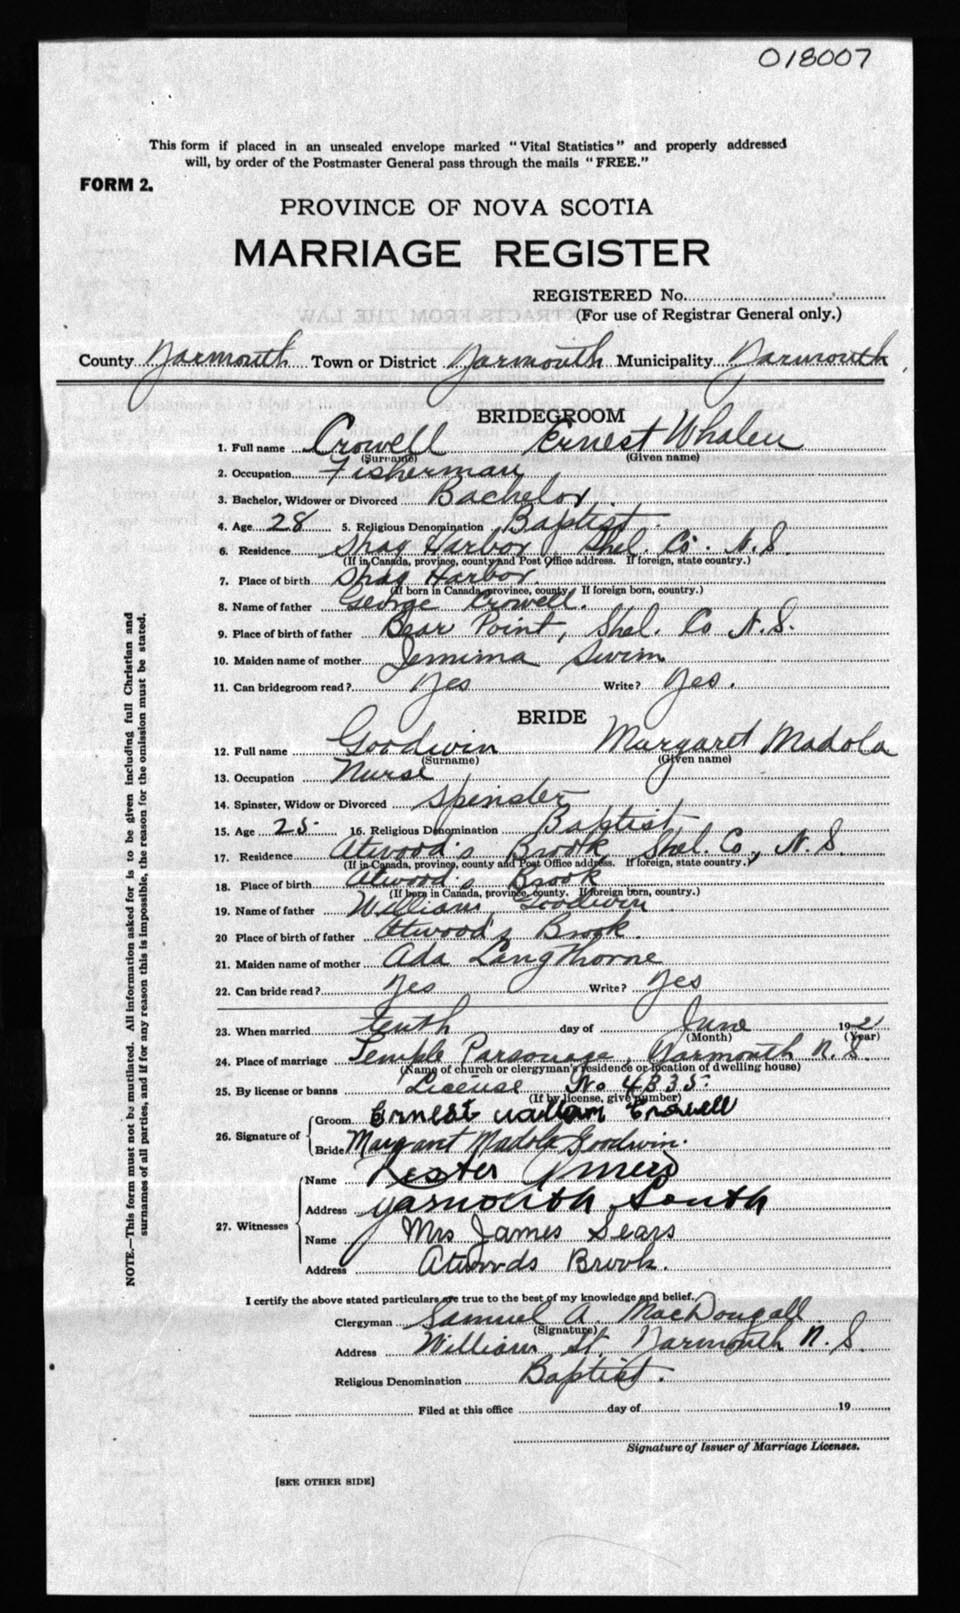 018007
This form if placed in an unsealed envelope marked "Vital Statistics" and properly addressed
will, by order of the Postmaster General pass through the mails "FREE."
FORM 2.
PROVINCE OF NOVA SCOTIA
MARRIAGE REGISTER
REGISTERED No.
(For use of Registrar General only.)
County Yarmouth Town or District Yarmouth Municipality Yarmouth
BRIDEGROOM
1. Full name Crowell Ernest Whalen
(Surname) (Given name)
2. Occupation Fisherman
3. Bachelor, Widower or Divorced Bachelor.
4. Age 28 5. Religious Denomination Baptist.
6. Residence Shag Harbor, Shel. Co. N.S.
(If in Canada, province, county and Post Office address. If foreign, state country.)
7. Place of birth Shag Harbor.
(If born in Canada, province, county. If foreign born, country.)
8. Name of father George Crowell.
9. Place of birth of father Bear Point, Shel. Co N.S.
10. Maiden name of mother Jemima Swim
11. Can bridegroom read? Yes Write? Yes.
BRIDE
12. Full name Goodwin Margaret Madola
(Surname) (Given name)
13. Occupation Nurse
14. Spinster, Widow or Divorced Spinster
15. Age 25 16. Religious Denomination Baptist
17. Residence Atwood's Brook, Shel. Co., N.S.
(If in Canada, province, county and Post Office address. If foreign, state country.)
18. Place of birth Atwood's Brook
(If born in Canada, province, county. If foreign born, country.)
19. Name of father William Goodwin
20 Place of birth of father Atwood's Brook.
21. Maiden name of mother Ada Langthorne
22. Can bride read? Yes Write? Yes
23. When married tenth day of June 19
(Month) (Year)
24. Place of marriage Temple Parsonage, Yarmouth N.S.
(Name of church or clergyman's residence or location of dwelling house)
25. By license or banns License No 4335.
(If by license, give number)
26. Signature of Groom Ernest Crowell
Bride Margaret Madola Goodwin.
27. Witnesses Name Lester
Address Yarmouth South
Name Mrs James Sears
Address Atwoods Brook.
I certify the above stated particulars are true to the best of my knowledge and belief.
Clergyman Samuel A. MacDougall
(Signature)
Address William St. Yarmouth N.S.
Religious Denomination Baptist.
Filed at this office day of 19
Signature of Issuer of Marriage Licenses.
[SEE OTHER SIDE]
NOTE.—This form must not be mutilated. All information asked for is to be given including full Christian and
surnames of all parties, and if for any reason this is impossible, the reason for the omission must be stated.